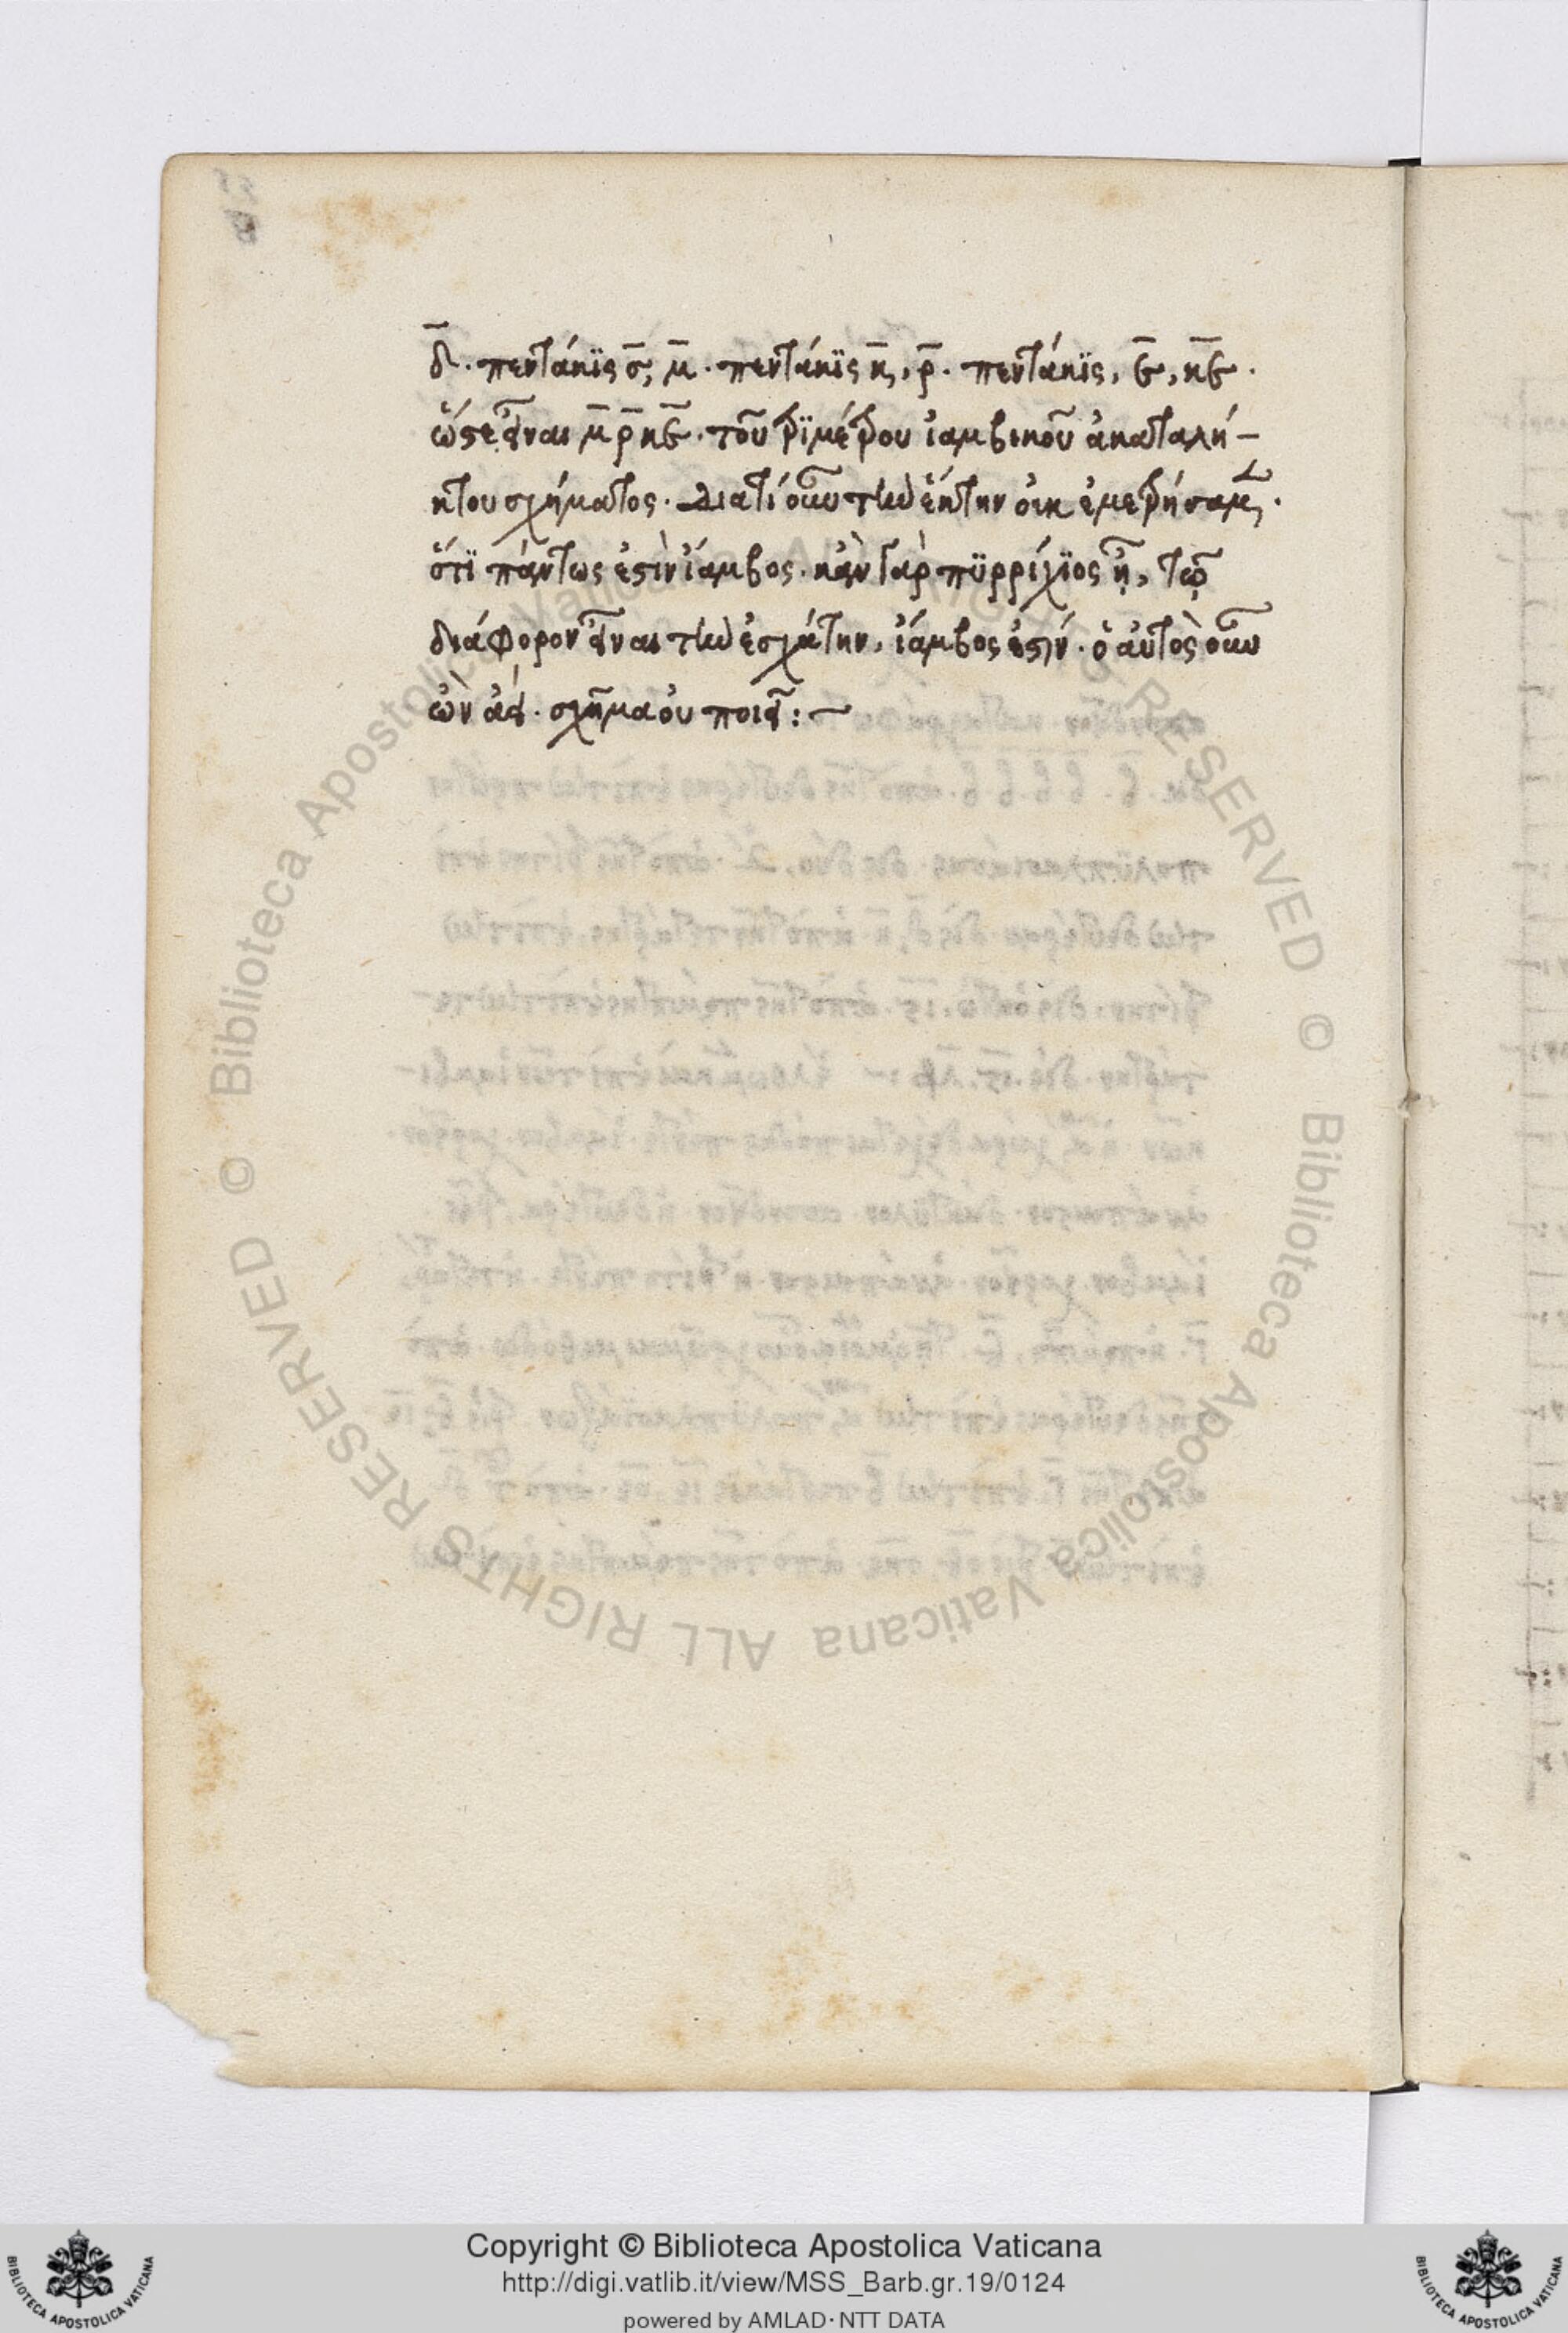 δ̅. πεντάκϊς σ̅, μ̅. πεντάκϊς κ̅, ρ̅. πεντάκϊς, ε̅, κ̅ε̅.
ὥστε εἶναι μ̅ρ̅κ̅ε̅. τοῦ τρϊμέτρου ἰαμβικοῦ ἀκαταλή-
κτου σχήματος. διατί οὖν τὴν ἕκτην οὐκ ἐμετρήσαμεν.
ὅτϊ πάντως ἐστὶν ἴαμβος. κἂν γὰρ πϋρρίχϊος ᾖ, τῷ
διάφορον εἶναι τὴν ἐσχάτην, ἴαμβος ἐστίν. ὁ αὐτὸς οὖν
ὢν ἀεί. σχῆμα οὐ ποιεῖ:~
Biblioteca Apostolica Vaticana ALL RIGHTS RESERVED © Biblioteca Apostolica Vaticana ALL RIGHTS RESERVED ©
Copyright © Biblioteca Apostolica Vaticana
http://digi.vatlib.it/view/MSS_Barb.gr.19/0124
powered by AMLAD·NTT DATA
BIBLIOTECA APOSTOLICA VATICANA
BIBLIOTECA APOSTOLICA VATICANA